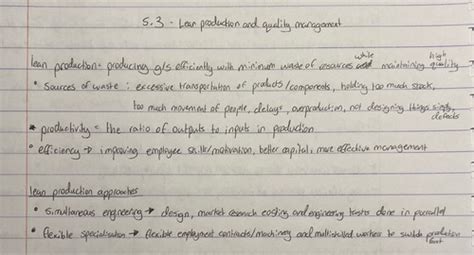 5.3 - Lean production and quality management
lean production = producing g/s efficiently with minimum waste of resources while maintaining high quality
• Sources of waste : excessive transportation of products/components, holding too much stock,
too much movement of people, delays, overproduction, not designing things simply,
defects
* productivity = the ratio of outputs to inputs in production
• efficiency → improving employee skills/motivation, better capital, more effective management
lean production approaches
• Simultaneous engineering → design, market research costing and engineering tests done in parallel
• flexible specialisation → flexible employment contracts/machinery and multiskilled workers to switch production